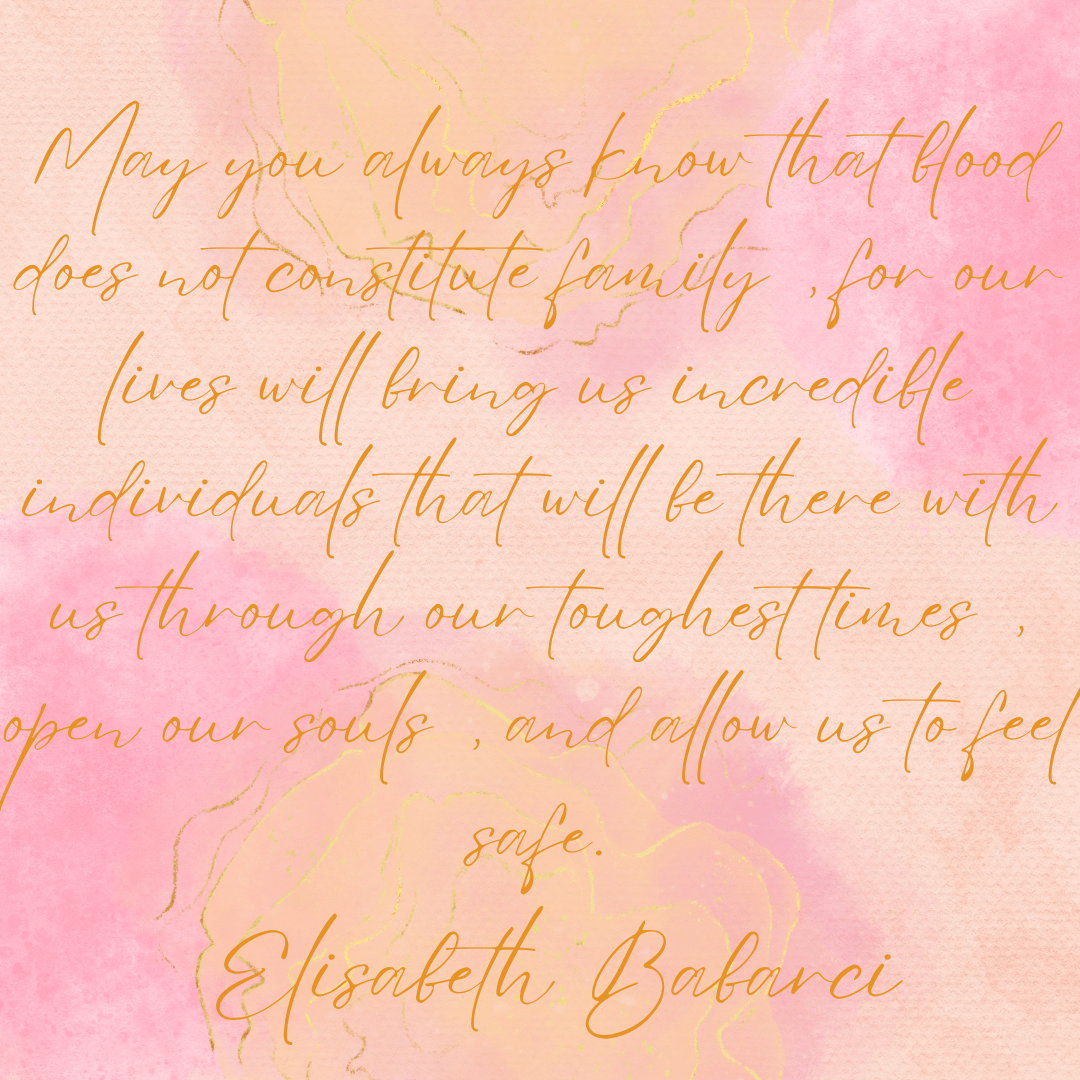 May you always know that blood
does not constitute family , for our
lives will bring us incredible
individuals that will be there with
us through our toughest times ,
open our souls , and allow us to feel
safe.
Elisabeth Babarci